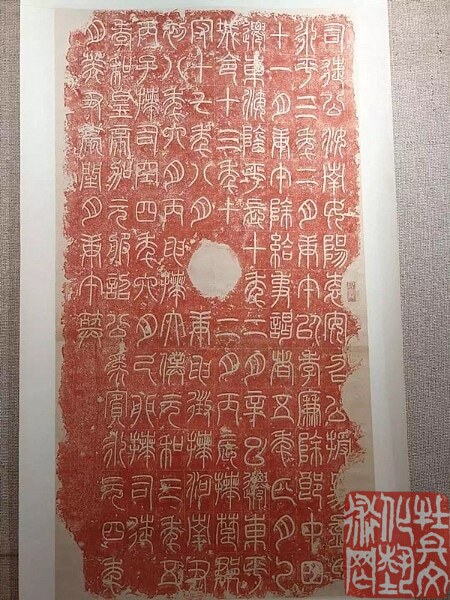 司徒公汝南女陽袁安召公授易孟
永平三年二月庚午以孝廉除郎中四
十一月庚午除給事謁者五年正月乙
遷東海陰平長十年二月辛巳遷東平
城令十三年十二月丙辰拜楚郡
守十七年八月庚申徵拜河南尹
初八年六月丙申拜太僕元和三年五
丙子拜司空四年六月己卯拜司徒
孝和皇帝加元服詔公為賓永元四年
月癸丑薨閏月庚午葬